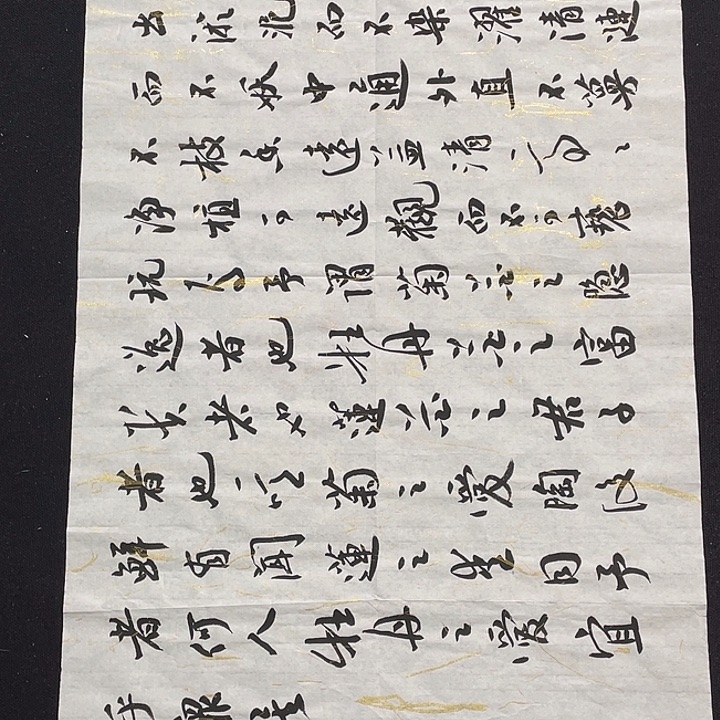 出淤泥而不染濯清漣
而不妖中通外直不蔓
不枝香遠益清亭亭
淨植可遠觀而不可褻
玩焉予謂菊花之隱
逸者也牡丹花之富
貴者也蓮花之君子
者也噫菊之愛陶後
鮮有聞蓮之愛同予
者何人牡丹之愛宜
乎眾矣